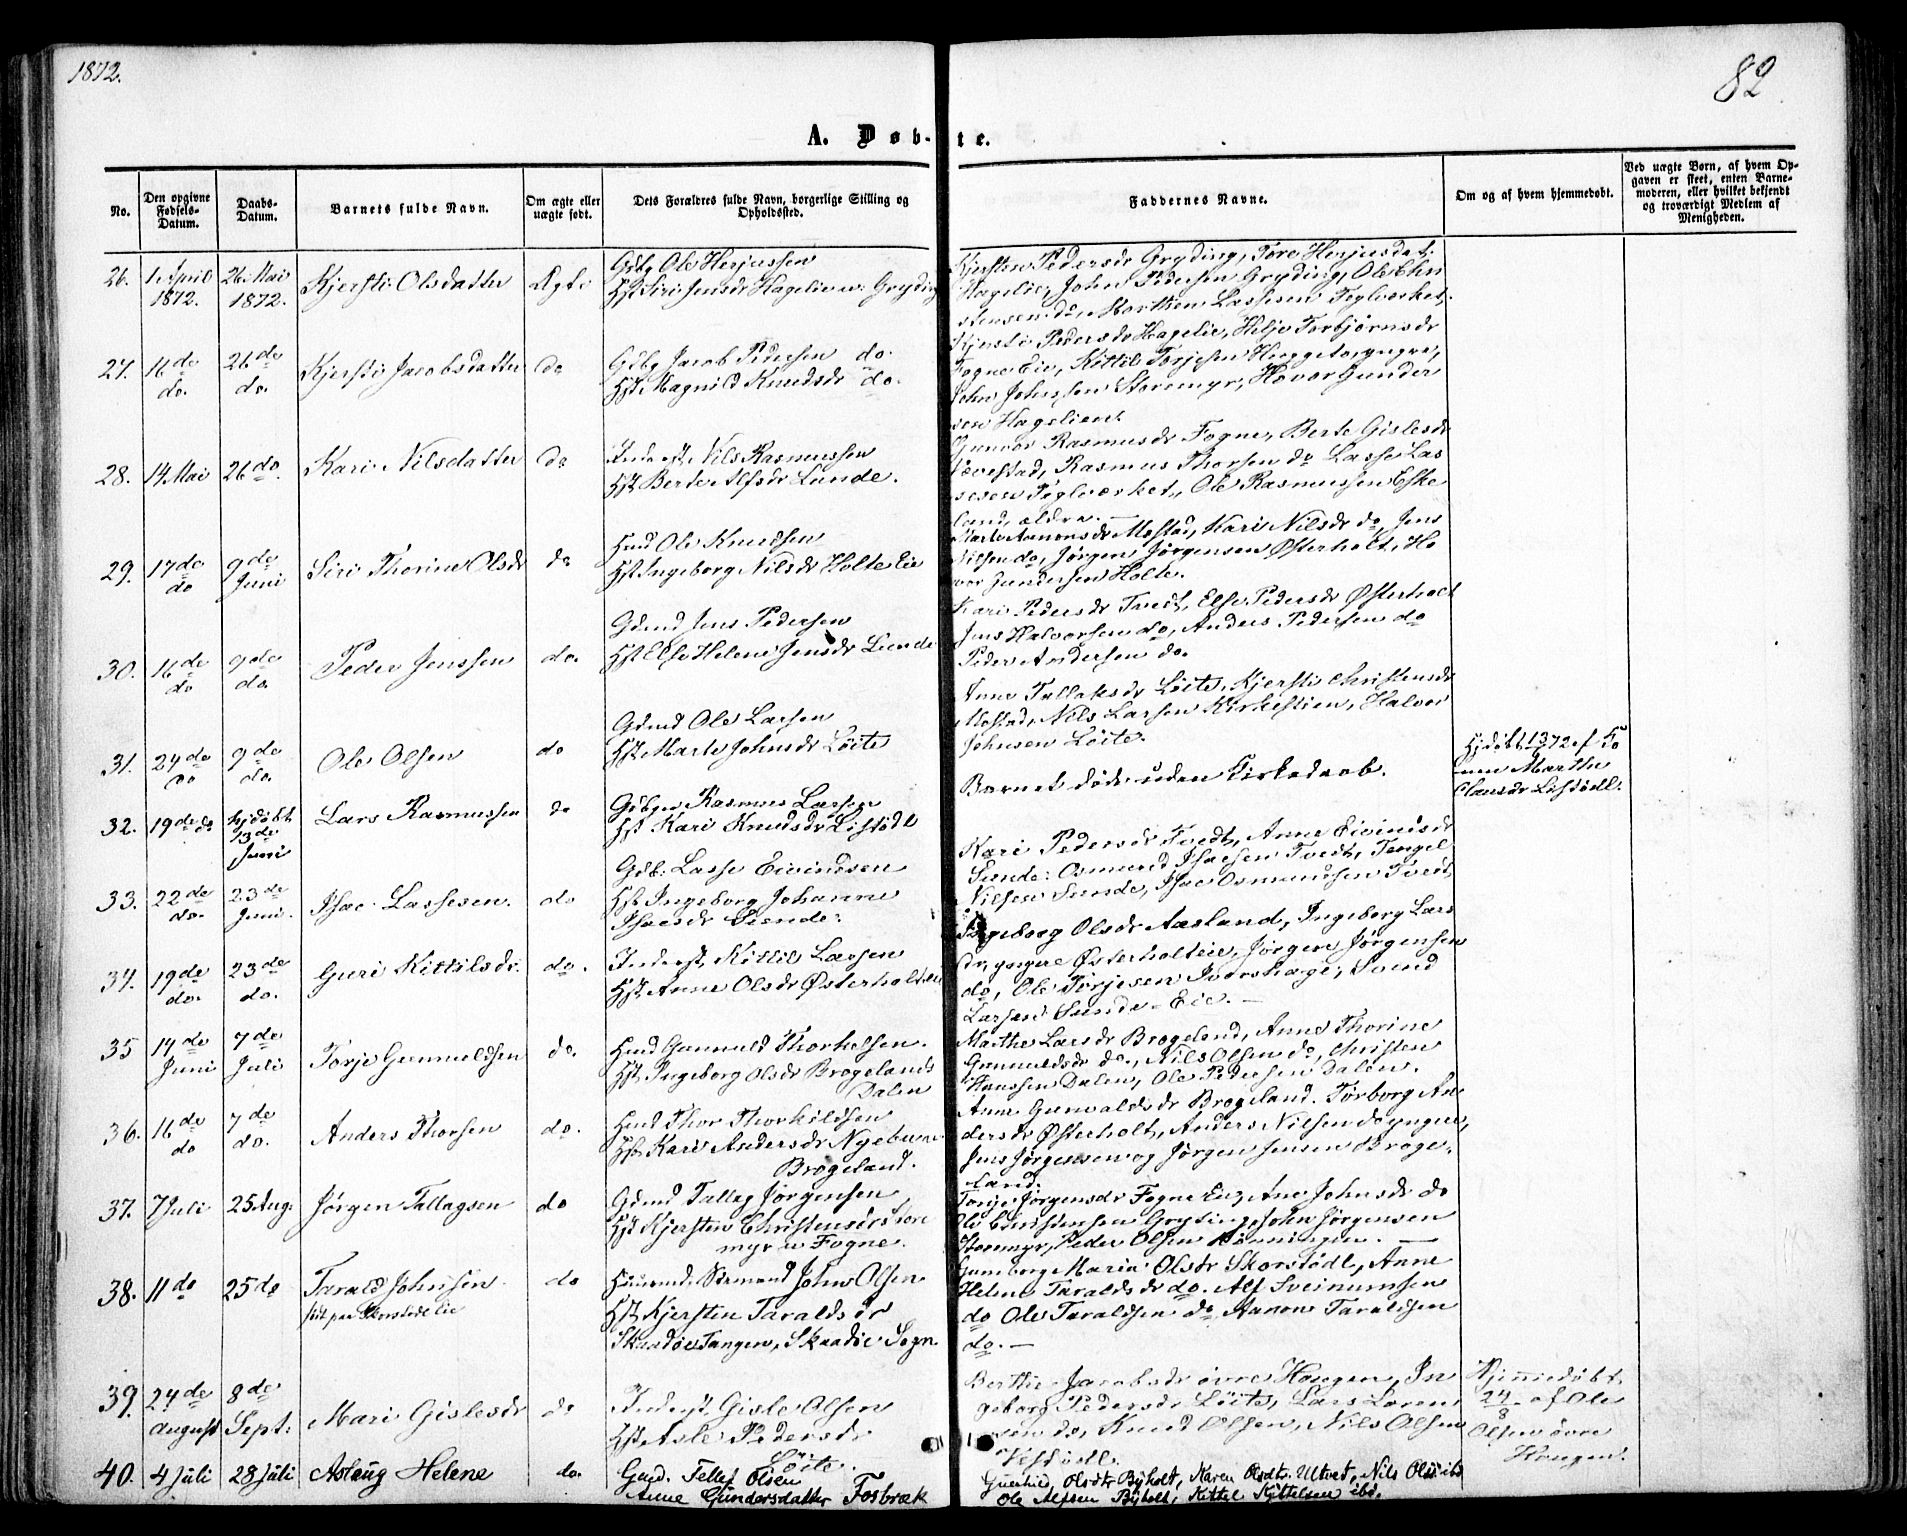 1872.
82
A. Døb-te.
No.
Den opgivne Fødsels-Datum.
Daabs-Datum.
Barnets fulde Navn.
Om ægte eller uægte født.
Dets Forældres fulde Navn, borgerlige Stilling og Opholdssted.
Faddernes Navne.
Om og af hvem hjemmedøbt.
Ved uægte Børn, af hvem Op-
gaven er skeet, enten Barne-
moderen, eller hvilket bekjendt
og troværdigt Medlem af
Menigheden.
26. 1 April 1872. 26 Mai 1872. Kjersti Olsdatter Ægte
Gdbg Ole Herjussen
Hst Siri Jensdr Hagelie u: Gryding
Kjersten Pedersdr Gryding, Tore Herjusdat.
Hagelie, John Pedersen Gryding, Ole Chri
stensen do, Morthen Lassesen Teglverket.
27. 16de do. 26de do. Kjersti Jacobsdatter do
Gdbg Jacob Pedersen do.
Hst. Magnild Knudsdr do.
Kjersti Pedersdr Hagelie, Helje Torbjørnsdr
Fogne Eie, Kittil Torjesen Heggeto, yngre,
John Johnsen Storemyr, Havor Gunder
sen Hagelien.
28. 14 Mai 26 do. Kari Nilsdatter do
Inderst, Nils Rasmussen
Hst Berte Alfsdr Lunde.
Gunvor Rasmusdr Fogne, Berte Gislesdr
Vævestad, Rasmus Thorsen do Lasse Las
sesen Teglverket, Ole Rasmussen Eske
land, ældre. —
29. 17de do 9de Juni Siri Thorine Olsdr do
Hmd Ole Knudsen
Hst Ingeborg Nilsdr Holte Eie
Marte Aanonsdr Mostad, Kari Nilsdr do, Jens
Nilsen do, Jørgen Jørgensen Østerholt, Ha
vor Gundersen Holte.
30. 16de do 9de do. Peder Jenssen do.
Gdmd Jens Pedersen
Hst Else Helene Jensdr Liende
Kari Pedersdr Tvedt, Else Pedersdr Østerholt
Jens Halvorsen do, Anders Pedersen do
Peder Andersen do.
31. 24de do 9de do. Ole Olsen do
Gdmd Ole Larsen
Hst. Marte Johnsdr Löite
Anne Tallaksdr Löite, Kjersti Christensdr
Mostad, Nils Larsen Kirkestien, Halvor
Johnsen Löite.
32. 19de do hjdøbt 13de Juni Lars Rasmussen do
Gdbgn Rasmus Larsen
Hst Kari Knudsdr Listödl
Barnet døde uden Kirkedaab.
Hjdøbt 13/6 72. af Ko
nen Marthe
Clausdr Listödl.
33. 22de do. 23de Juni. Isac Lassesen. do
Gdb: Lasse Eivindsen
Hst Ingeborg Johanne
Isacsdr Sunde:
Kari Pedersdr Tvedt, Anne Eivindsdr
Sunde: Osmund Isacsen Tvedt, Tengel
Nilsen Sunde, Isac Osmundsen Tvedt
34. 19de do. 23de do. Guri Kittilsdr. do.
Inderst, Kittil Larsen
Hst. Anne Olsdr Østerholteie
Ingeborg Olsdr Aasland, Ingeborg Lars
dr, yngre Østerholteie, Jørgen Jørgensen
do, Ole Torjesen Ivarshage, Svend
Larsen Sunde-Eie. —
35 14de Juni 7de Juli Torje Gunnuldsen do.
Hmd Gunnuld Thorkelsen.
Hst. Ingeborg Olsdr Brogelands
Dalen
Marthe Larsdr Brogeland, Anne Thorine
Gunnuldsdr do., Nils Olsen do, Christen
Hanssen Dalen, Ole Pedersen Dalen.
36. 16de do 7de do. Anders Thorsen do.
Hmd Thor Thorkildsen
Hst. Kari Andersdr Nyebuen
Brogeland.
Anne Gunvaldsdr Brogeland. Torborg An
dersdr Østerholt, Anders Nilsen do yngre,
Jens Jørgensen og Jørgen Jensen Broge-
land.
37. 7 Juli 25 Aug: Jørgen Tallagsen do
Gdmd Tallag Jørgensen
Hst Kjersten Christensdr Store
myr u Fogne.
Torje Jørgensdr Fogne Eng, Ane Johnsdr do
Ole Christensen Gryting, John Jørgensen
Storemyr, Peder Olsen Rønningen. —
38. 11 do 25 do Tarald Johnsen do
født paa Skorstøl eie
Sømand John Olsen
Hst Kjersten Taraldsdr
Skaadöe Tangen, Skaadöe Sogn
Gunborg Maria Olsdr Skorstødl, Anne
Helene Taraldsdr do. Alf Sveinumsen
do Ole Taraldsen do, Aanon Taraldsen
do. —
39. 24de August 8de Sept: Mari Gislesdr do
Inderst Gisle Olsen
Hst Asle Pedersdr
Löite.
Berthe Jacobsdr övre Hougen, In
geborg Pedersdr Löite, Lars Loren
sen do, Knud Olsen, Nils Olsen
Vestødl.
Hjemmedøbt
24/8 af Ole
Olsen övre
Hougen.
40. 4 juli 28 juli Aslaug Helene do.
Gaard. Tellef Olsen
Anne Gundersdatter Fosbræk
Gunhild Olsdtr Byholt, Karen Olsdtr. Ultvet, Nils Olss. ibd
Ole Alfsen Byholt, Kittel Kittelsen ibd.